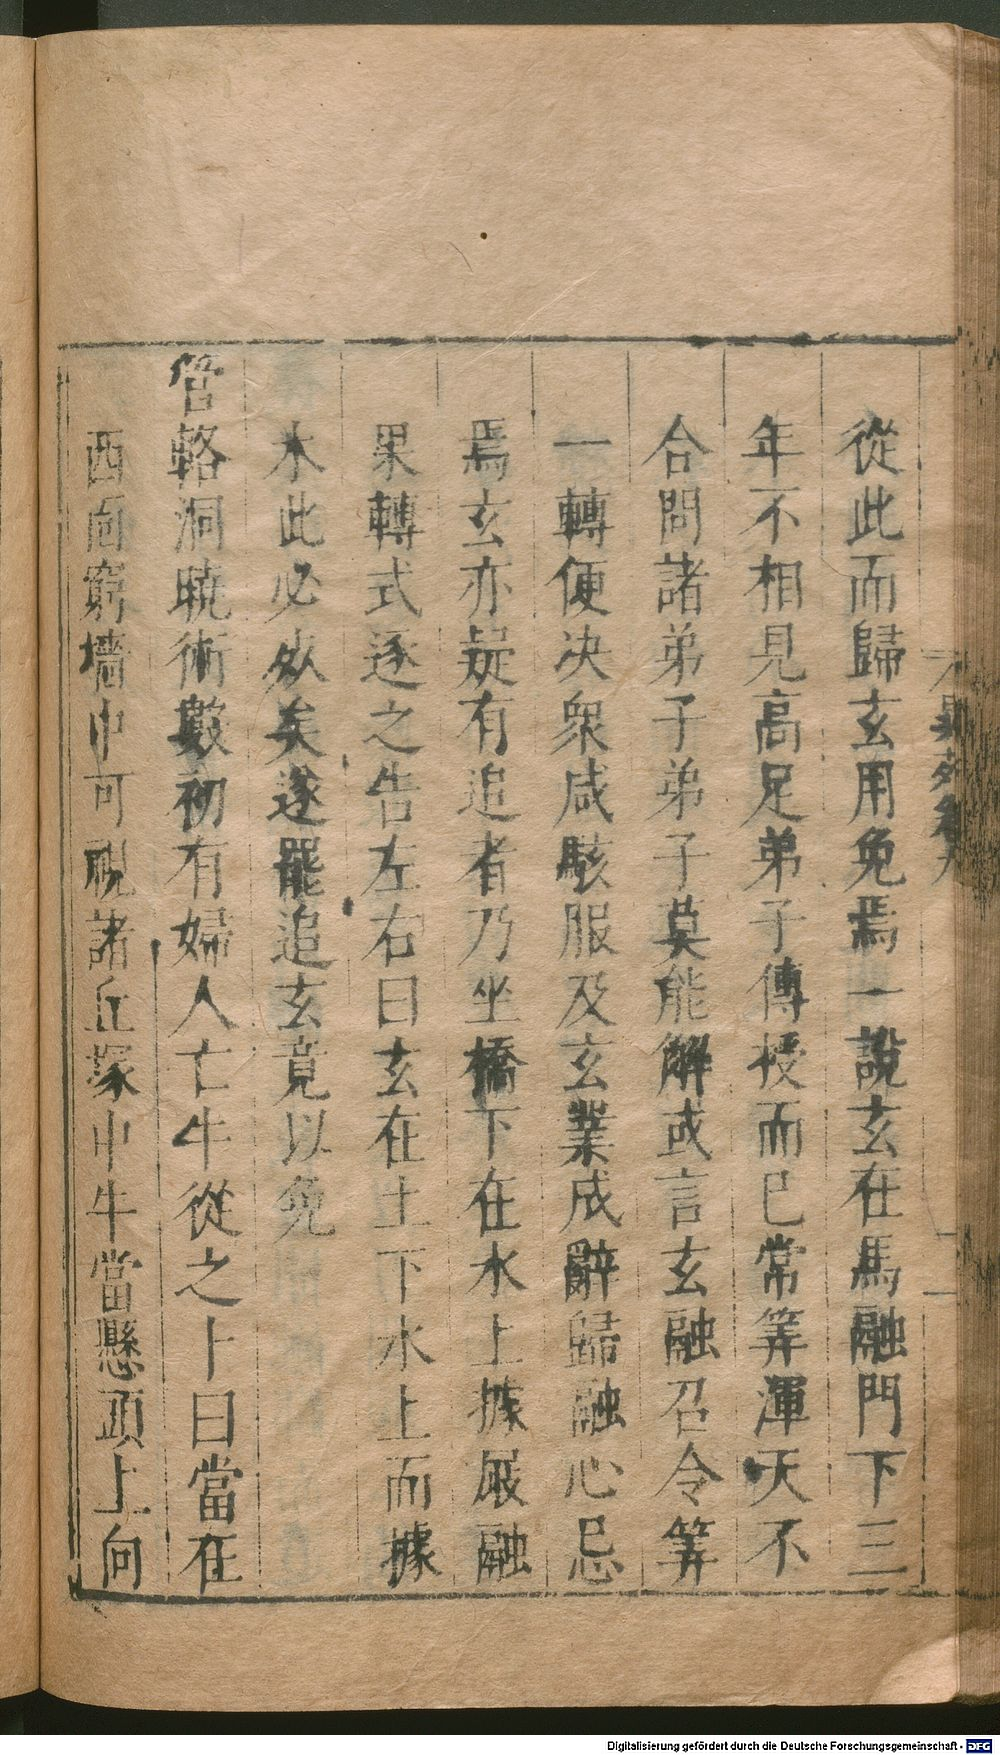 從此而歸玄用免焉一說玄在馬融門下三
年不相見高足弟子傳授而已常筭渾天不
合問諸弟子弟子莫能解或言玄融召令筭
一轉便决衆咸駭服及玄業成辭歸融心忌
焉玄亦疑有追者乃坐橋下在水上據屐融
果轉式逐之告左右曰玄在土下水上而據
木此必死矣遂罷追玄竟以免
管輅洞曉術數初有婦人亡牛從之卜曰當在
西面窮墻中可視諸丘塚中牛當懸頭上向
Digitalisierung gefördert durch die Deutsche Forschungsgemeinschaft - DFG